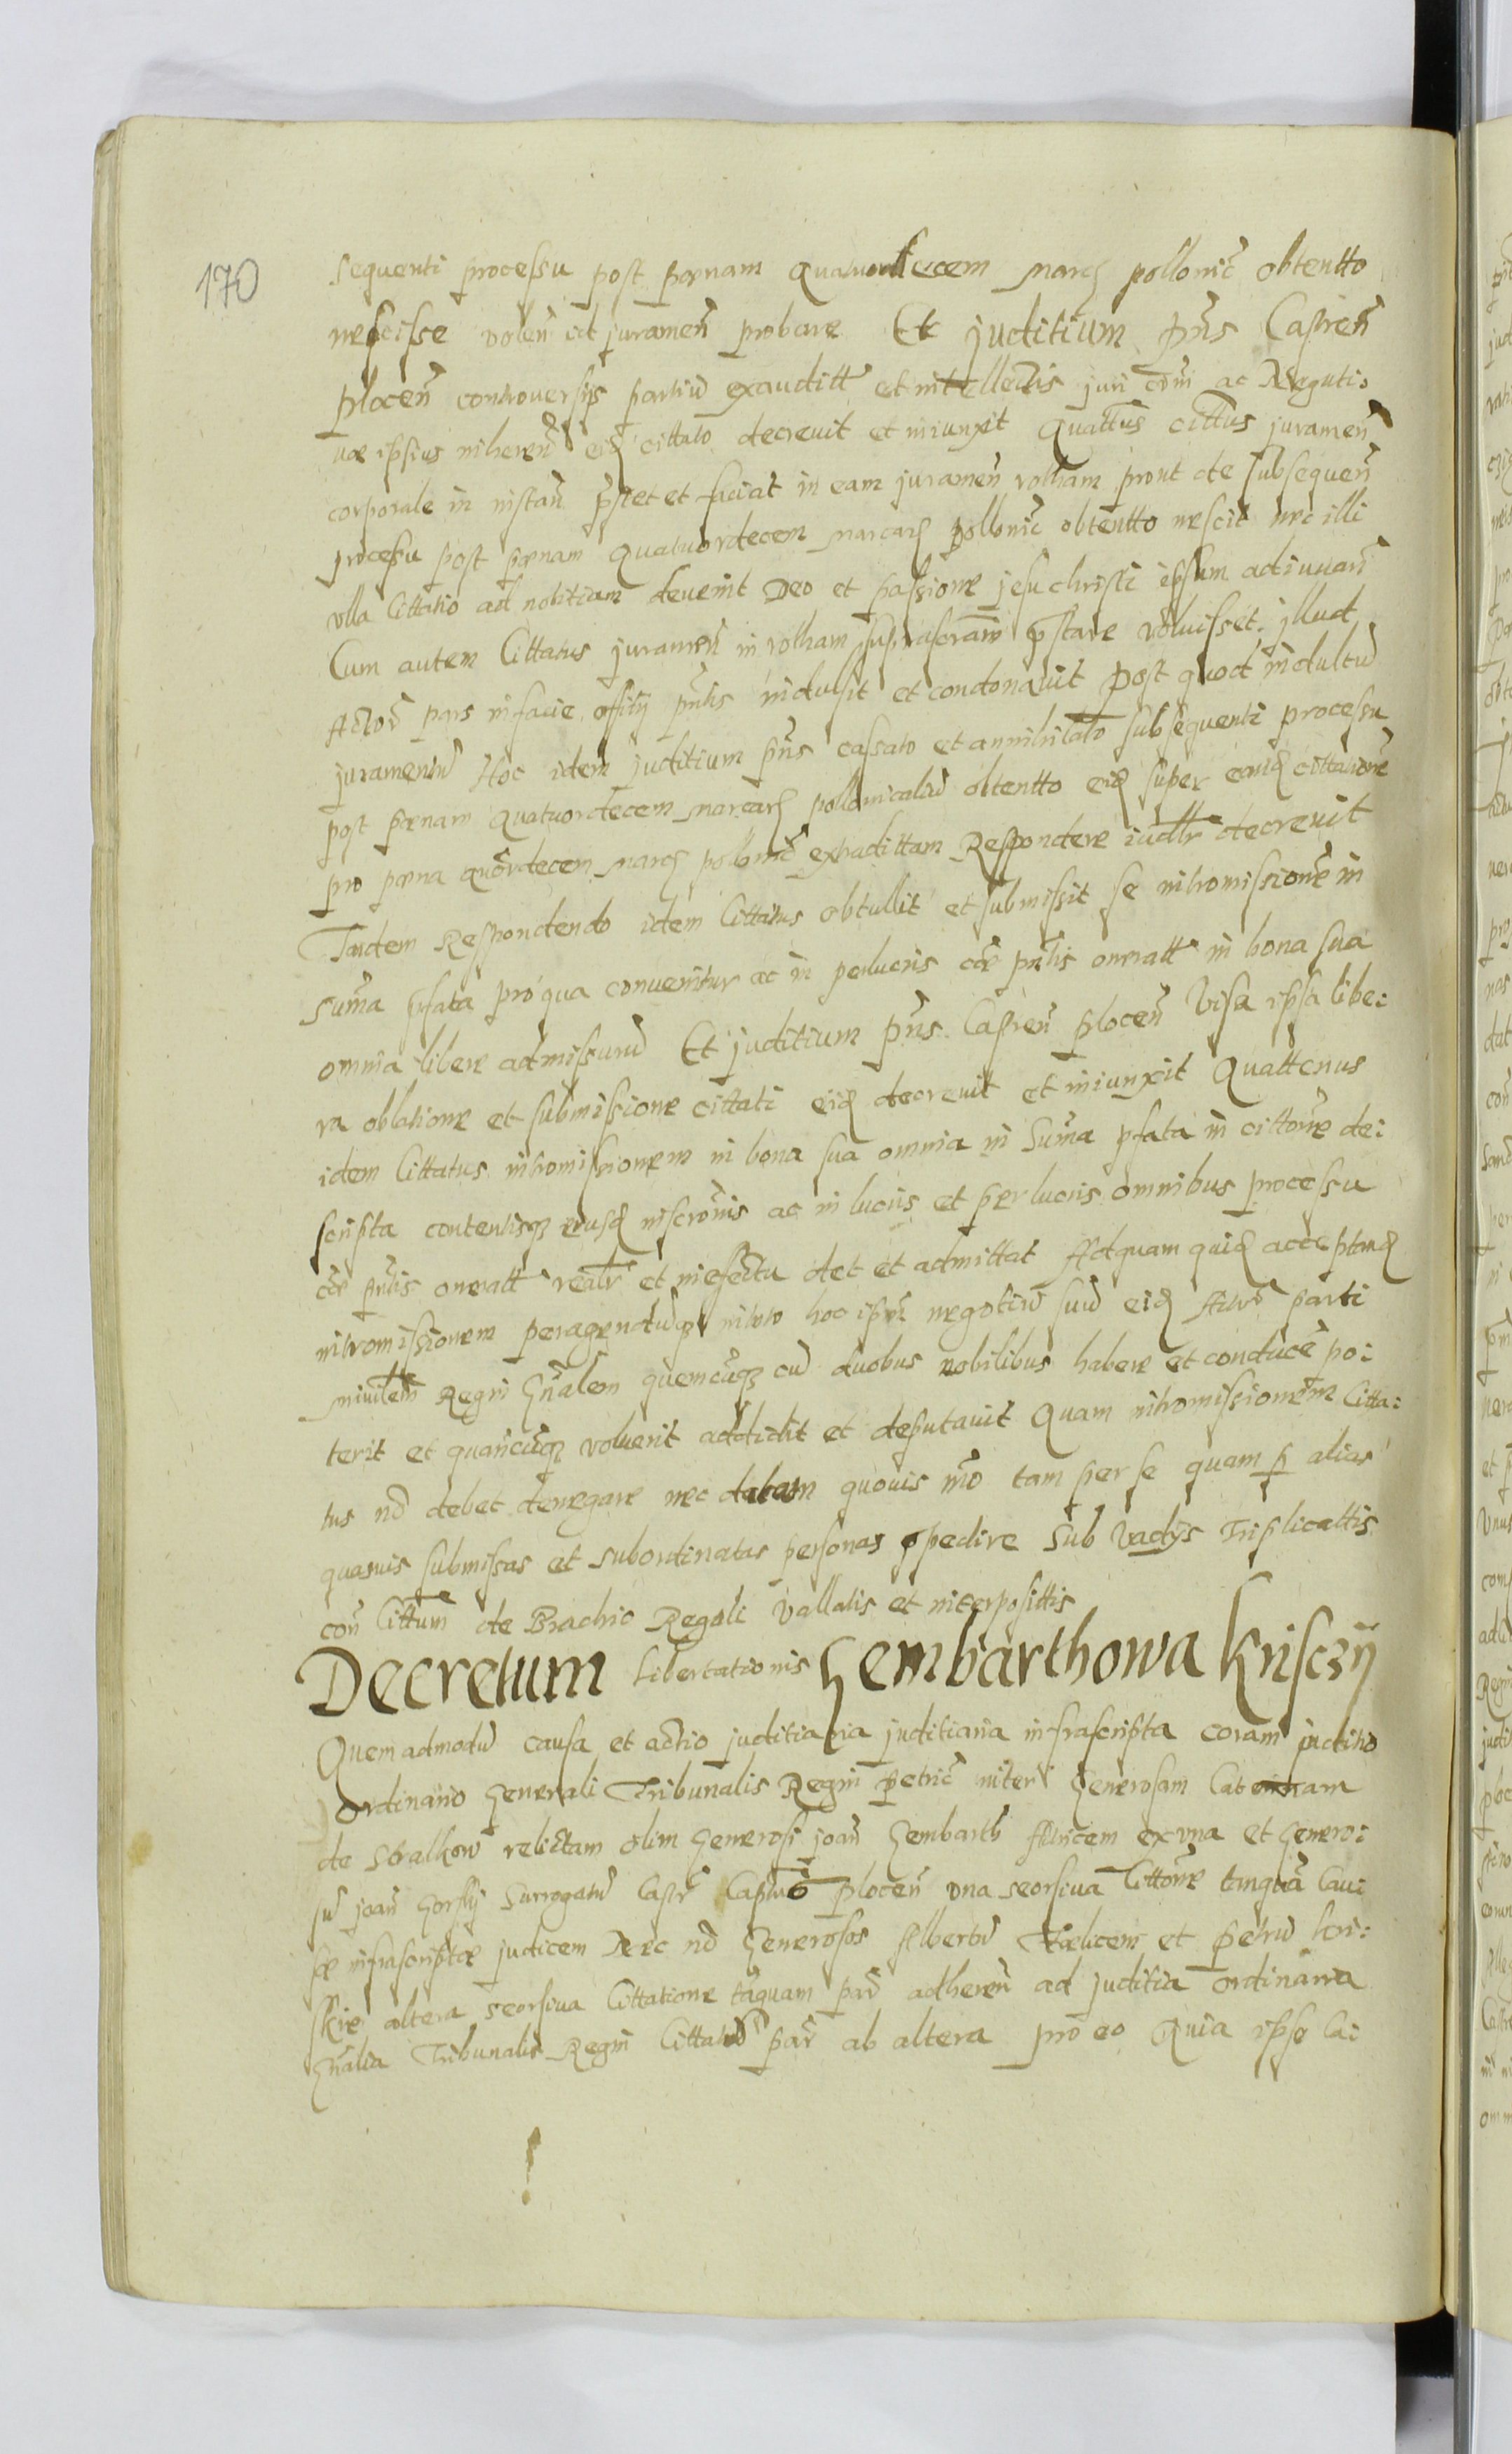 170
sequenti processu post poenam quatuordecem marcꝭ pollonic̄ obtentto
nescisse volen̄ id juramen̄ probare Et juditium pn̄s Castren̄
plocen̄ controversijs partiū exauditt et intellectis juri com̄i ac
ipsius inheren̄ eiđ cittato decrevit et iniunxit Quatt͞us citt͞us juramen̄
corporale in instan̄ p̄stet et faciat in eam juramen̄ rotham prout de subsequen̄
processu post poenam quatuordecem marcarꝭ pollonic̄ obtentto nescit nec illi
ulla Cittatio ad notitiam devenit Deo et passione jesu christi ipsum adiuvan̄
Cum autem Cittatus juramen̄ in rotham suprascram̄ p̄stare voluisset, jllud
Actor̄ pars in facie offitij pn̄tis indulsit et condonavit post quod indultū
juramentū Hoc idem juditium pn̄s cassato et annihilato subsequenti processu
post poenam quatuordecem marcarꝭ pollonicaliū obtentto eiđ super eanđ cittatione̅
pro poena quōrdecem marcꝭ pollonic̄ extradittam Respondere iudlr̄ decrevit
Tandem Respondendo idem Cittatus obtullit et submissit se intromissione̅ in
sum̄a p̄fata pro qua convenitur ac in perlucris cōe pn̄tis onoratt in bona sua
omnia libere admissurū Et juditium pn̄s Castren̄ plocen̄ Visa ipsa libe:
ra oblatione et submissione cittati eiđ decrevit et iniunxit Quattenus
idem Cittatus intromissionem in bona sua omnia in sum̄a p̄fata in cittōne de:
scripta contentisqꝫ eiusđ inscrōnis ac in lucris et perlucris omnibus processu
cōe pn̄tis onoratt realr̄ et in efectu det et admittat Ad quam quiđ acceptanđ
intromissionem peragendūqꝫ in toto hoc ipm̄ negotiū suū eiđ Actrī parti
mintlem̄ Regni Gn̄alem quemcūqꝫ cū duobus nobilibus habere et conducē po:
terit et quancūqꝫ voluerit addidit et deputavit Quam intromissionem̄ Citta:
tus nō debet denegare nec quovis mō tam per se quam p̱ alias
quasvis submissas et subordinatas personas p̱pedire sub Vadijs Triplicattis
con̄ Citt͞um de Brachio Regali Vallatis et interposittis
Decretum Libertationis Gembarthowa Krisczÿ
Quemadmodū causa et actio juditiaria juditiaria infrascripta coram juditio
ordinario Generali Tribunalis Regni Petric̄ inter Generosam Caterinam
de Stralkow relictam olim Generosi joan̄ Gembarth Actricem ex una et Genero:
sū joan̄ Gorskij Surrogatū Castr̄ Captū plocen̄ una seorsiva Cittōne tanquā Cau:
sæ infrascriptæ judicem Nec nō Generosos Albertū Fœlicem et Petrū
skie altera seorsiva Cittatione tāquam par̄ adheren̄ ad juditia ordinaria
Gn̄alia Tribunalis Regni Cittatū par̄ ab altera pro eo Quia ipse Ca: